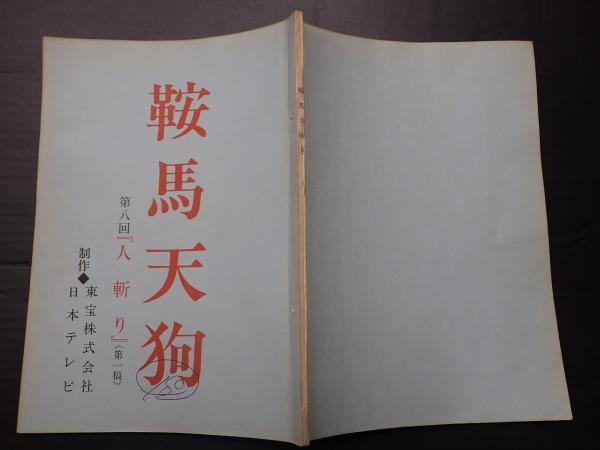 鞍馬天狗
第八回『人斬り』(第一稿)
制作◆東宝株式会社
日本テレビ